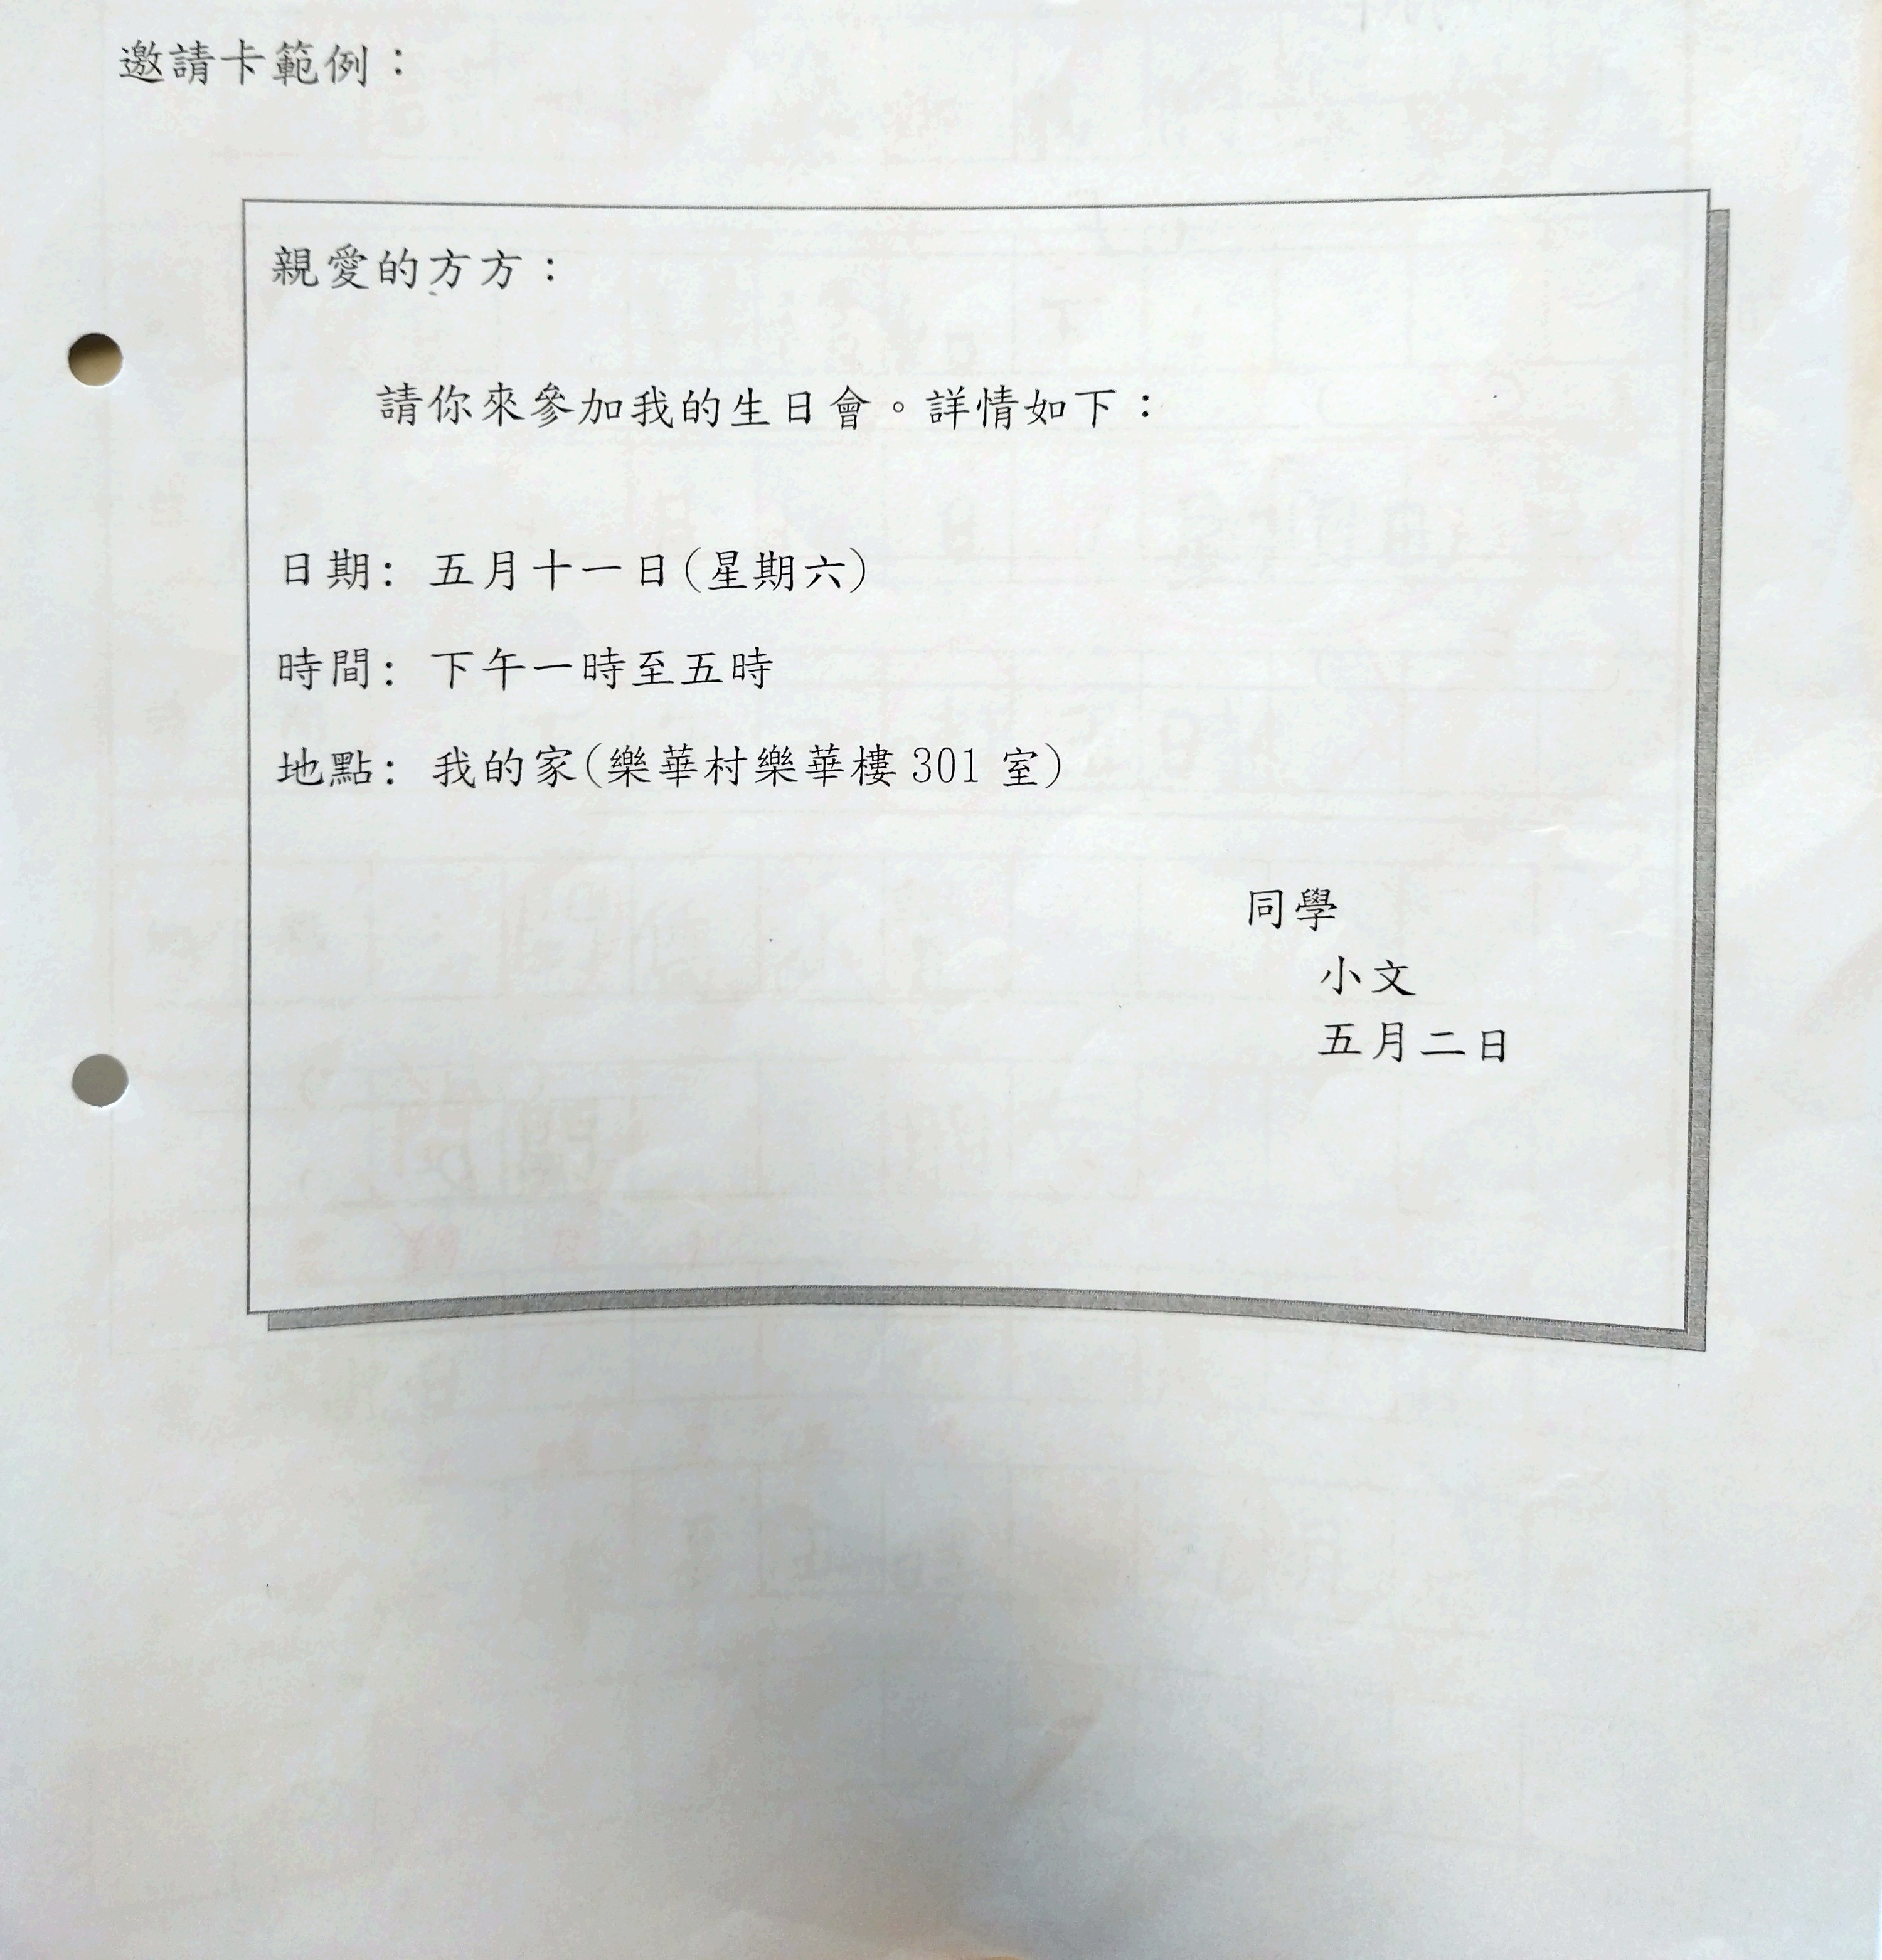 邀請卡範例：
親愛的方方：
請你來參加我的生日會。詳情如下：
日期: 五月十一日(星期六)
時間: 下午一時至五時
地點: 我的家(樂華村樂華樓 301 室)
同學
小文
五月二日